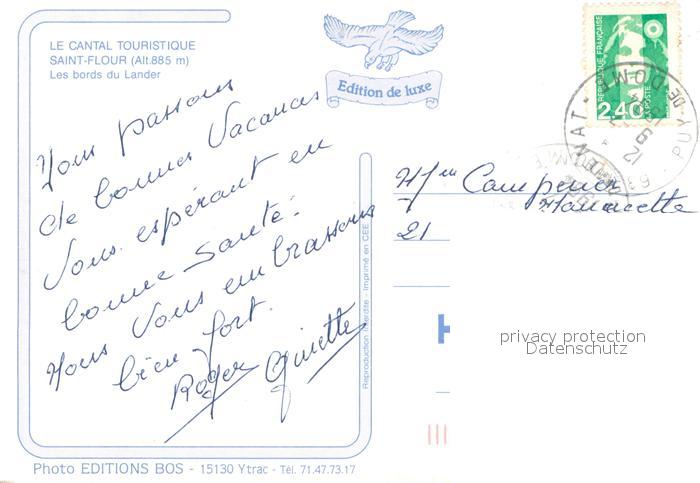 LE CANTAL TOURISTIQUE
SAINT-FLOUR (Alt.885 m)
Les bords du Lander
Edition de luxe
RÉPUBLIQUE FRANÇAISE
2,40
LA POSTE
PUY-DE-DOME
Nous passons
de bonnes Vacances
Vous espérant en
bonne santé.
Nous Vous embrassons
bien fort.
Roger Ginette
21
Reproduction interdite - Imprimé en CEE
privacy protection
Datenschutz
Photo EDITIONS BOS - 15130 Ytrac - Tél. 71.47.73.17